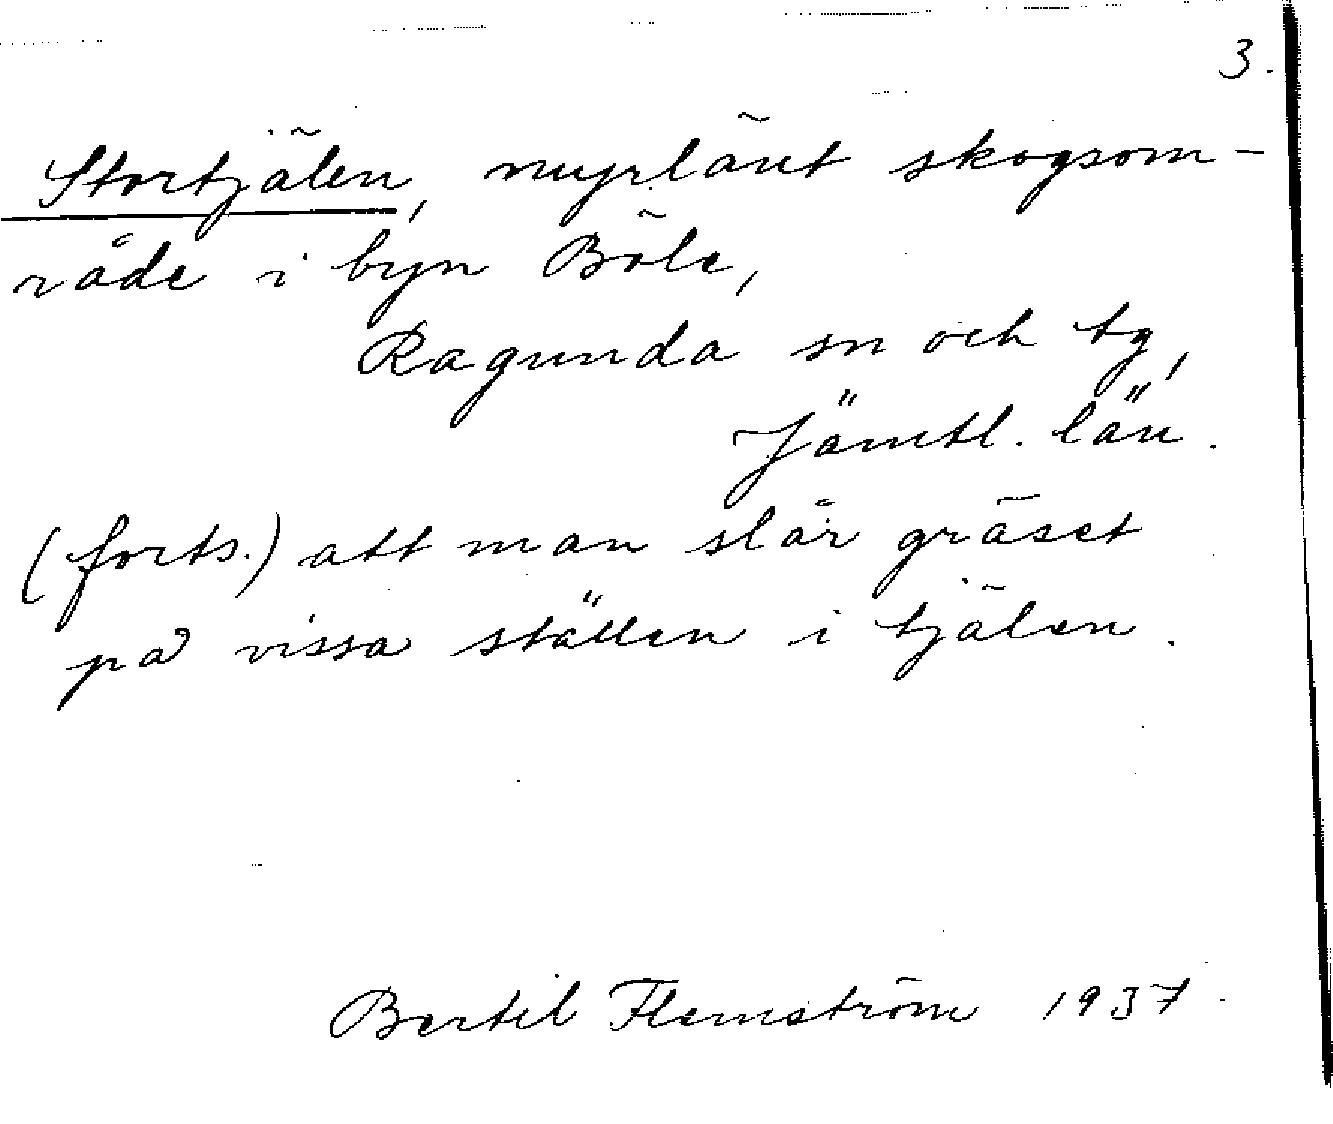 3.
Stortjälen, myrlänt skogsom-
råde i byn Böle,
Ragunda sn och tg,
Jämtl. län.
(forts.) att man slår gräset
på vissa ställen i tjälen.
Bertil Flemström 1937